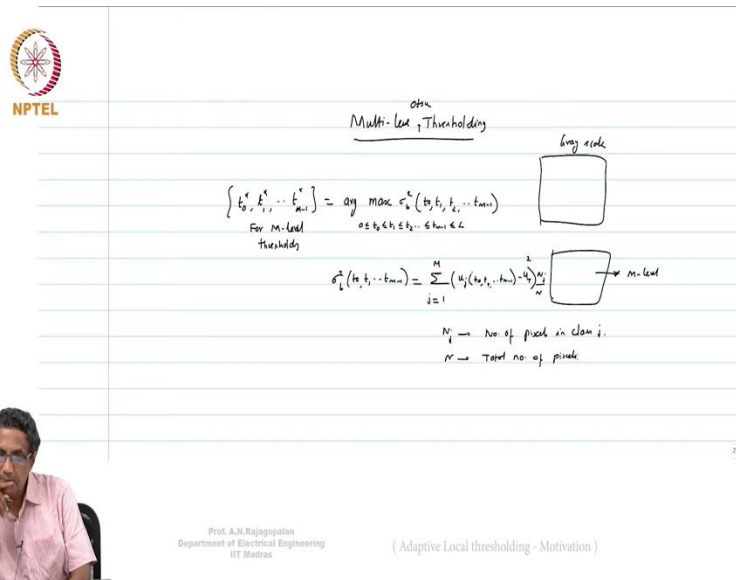 NPTEL
Otsu
Multi-level Thresholding
Gray scale
{t₀*, t₁*, .. t*ₘ₋₁} = arg max σ_b²(t₀, t₁, t₂, .. tₘ₋₁)
For M-level 0 ≤ t₀ ≤ t₁ ≤ t₂ .. ≤ tₘ₋₁ ≤ L
thresholds
σ_b²(t₀, t₁ .. tₘ₋₁) = Σ_{j=1}^{M} (μ_j(t₀, t₁, .. tₘ₋₁) - μ_T)² N_j/N → M-level
N_j → No. of pixels in class j.
N → Total no. of pixels.
Prof. A.N.Rajagopalan
Department of Electrical Engineering
IIT Madras
( Adaptive Local thresholding - Motivation )